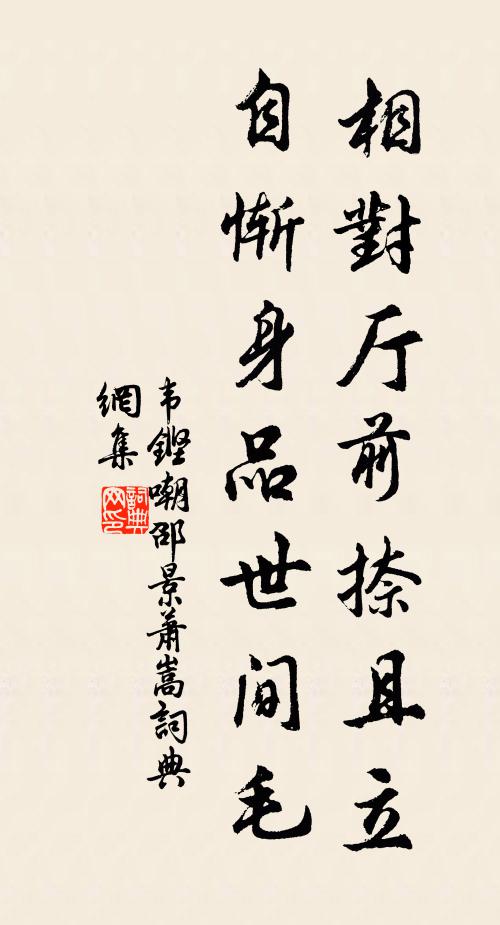 相對厅前捺且立
自慚身品世间毛
韦鏗嘲邵景萧嵩詞典
網集
詞典
网印